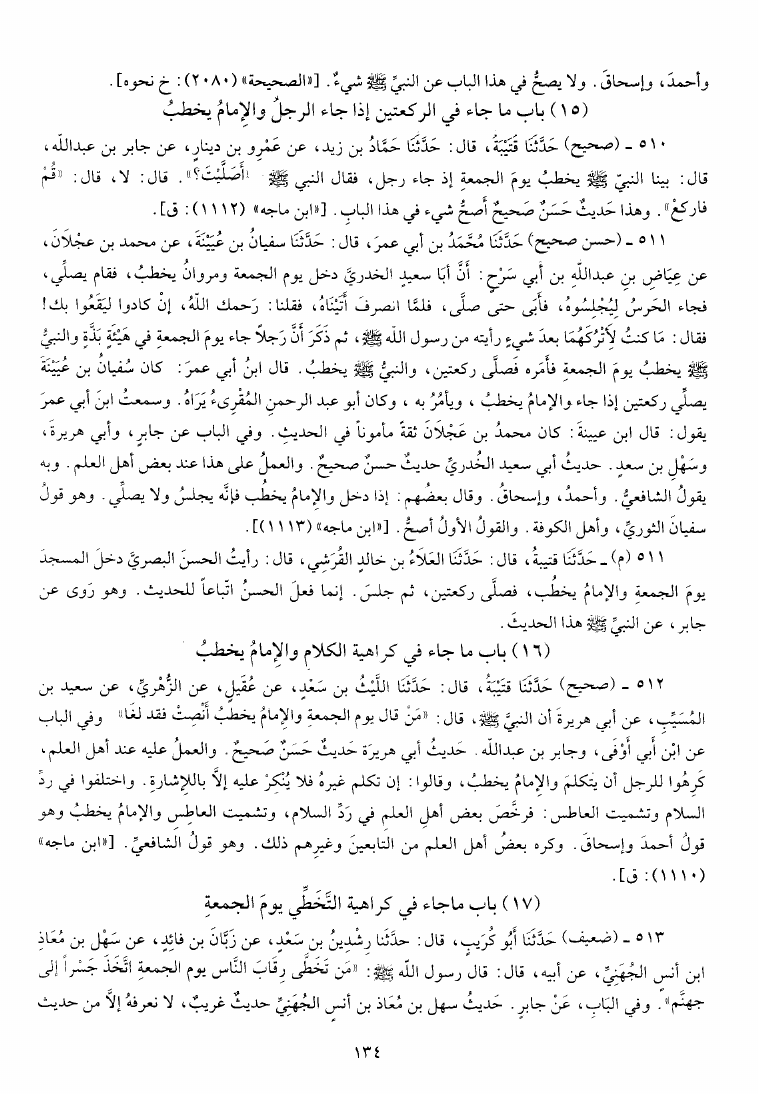 وأحمدَ، وإسحاقَ. ولا يصحُّ في هذا الباب عن النبيِّ ﷺ شيءٌ. [«الصحيحة» (٢٠٨٠): خ نحوه].
(١٥) باب ما جاء في الركعتين إذا جاء الرجلُ والإمامُ يخطبُ
٥١٠ ـ (صحيح) حَدَّثَنَا قُتَيْبَةُ، قال: حَدَّثَنَا حَمَّادُ بن زيد، عن عَمْرِو بن دينارٍ، عن جابر بن عبدالله،
قال: بينا النبيّ ﷺ يخطبُ يومَ الجمعةِ إذ جاء رجل، فقال النبي ﷺ «أَصَلَّيْتَ؟». قال: لا، قال: «قُمْ
فاركعْ». وهذا حَديثٌ حَسَنٌ صَحيحٌ أَصحُّ شيء في هذا البابِ. [«ابن ماجه» (١١١٢): ق].
٥١١ ـ (حسن صحيح) حَدَّثَنَا مُحَمَّدُ بن أبي عمرَ، قال: حَدَّثَنَا سفيانُ بن عُيَيْنَةَ، عن محمد بن عجْلَانَ،
عن عِيَاضِ بنِ عبداللهِ بن أبي سَرْحٍ: أَنَّ أبَا سعيدٍ الخدريَّ دخل يوم الجمعة ومروانُ يخطبُ، فقام يصلِّي،
فجاء الحَرسُ لِيُجْلِسُوهُ، فأَبَى حتى صلَّى، فلمَّا انصرفَ أتَيْنَاهُ، فقلنا: رَحمك اللهُ، إنْ كادوا لَيَقَعُوا بك!
فقال: مَا كنتُ لِأَتْرُكَهُمَا بعدَ شيءٍ رأيته من رسول الله ﷺ، ثم ذَكَرَ أنَّ رَجلاً جاء يومَ الجمعةِ في هَيْئَةٍ بَذَّةٍ والنبيُّ
ﷺ يخطبُ يومَ الجمعةِ فأمَره فَصلَّى ركعتين، والنبيُّ ﷺ يخطبُ. قال ابنُ أبي عمرَ: كان سُفيانُ بن عُيَيْنَةَ
يصلِّي ركعتين إذا جاء والإمامُ يخطبُ، ويأمُرُ به، وكان أبو عبد الرحمنِ المُقْرِىءُ يَرَاهُ. وسمعتُ ابنَ أبي عمرَ
يقول: قال ابن عيينة: كان محمدُ بن عَجْلَانَ ثقةً مأموناً في الحديثِ. وفي الباب عن جابرٍ، وأبي هريرةَ،
وسَهْلِ بن سعدٍ. حديثُ أبي سعيد الخُدريِّ حديثٌ حسنٌ صحيحٌ. والعملُ على هذا عند بعض أهل العلم. وبه
يقولُ الشافعيُّ. وأحمدُ، وإسحاقُ. وقال بعضُهم: إذا دخل والإمامُ يخطُب فإنَّه يجلسُ ولا يصلِّي. وهو قولُ
سفيانَ الثوريِّ، وأهل الكوفة. والقولُ الأولُ أصحُّ. [«ابن ماجه» (١١١٣)].
٥١١ (م) ـ حَدَّثَنَا قتيبةُ، قال: حَدَّثَنَا العَلَاءُ بن خالدٍ القُرَشِي، قال: رأيتُ الحسنَ البصريَّ دخلَ المسجدَ
يومَ الجمعةِ والإمامُ يخطُب، فصلَّى ركعتين، ثم جلسَ. إنما فعلَ الحسنُ اتّباعاً للحديث. وهو رَوى عن
جابر، عن النبيِّ ﷺ هذا الحديثَ.
(١٦) باب ما جاء في كراهية الكلامِ والإمامُ يخطبُ
٥١٢ ـ (صحيح) حَدَّثَنَا قتَيْبَةُ، قال: حَدَّثَنَا اللَّيْثُ بن سَعْدٍ، عن عُقَيلٍ، عن الزُّهْريِّ، عن سعيد بن
المُسَيِّبِ، عن أبي هريرةَ أن النبيَّ ﷺ، قال: «مَنْ قال يوم الجمعةِ والإمامُ يخطبُ أَنْصِتْ فقد لغَا» وفي الباب
عن ابْن أبي أَوْفَى، وجابر بن عبدالله. حَديثُ أبي هريرَة حَديثٌ حَسَنٌ صَحيحٌ. والعملُ عليه عند أهل العلم،
كَرِهُوا للرجل أن يتكلمَ والإمامُ يخطبُ، وقالوا: إن تكلم غيرهُ فلا يُنْكِرْ عليه إلاَّ باللإشارةِ. واختلفوا في ردِّ
السلام وتشميت العاطس: فرخَّصَ بعض أهلِ العلمِ في رَدِّ السلام، وتشميت العاطِس والإمامُ يخطبُ وهو
قولُ أحمدَ وإسحاقَ. وكره بعضُ أهل العلم من التابعينَ وغيرهم ذلك. وهو قولُ الشافعيِّ. [«ابن ماجه»
(١١١٠): ق].
(١٧) باب ماجاء في كراهية التَّخَطِّي يومَ الجمعةِ
٥١٣ ـ (ضعيف) حَدَّثَنَا أبُو كُرَيبٍ، قال: حدَّثنا رِشْدِينُ بن سَعْدٍ، عن زَبَّانَ بن فائِدٍ، عن سَهْل بن مُعَاذِ
ابن أنسٍ الجُهَنِيِّ، عن أبيه، قال: قال رسول الله ﷺ: «مَن تَخَطَّى رِقَابَ النَّاس يوم الجمعةِ اتَّخَذَ جَسْراً إلى
جهنَّم». وفي البَابِ، عَنْ جابرٍ. حَديثُ سهل بن مُعَاذ بن أنسٍ الجُهَنِيِّ حديثٌ غريبٌ، لا نعرفهُ إلاَّ من حديث
١٣٤